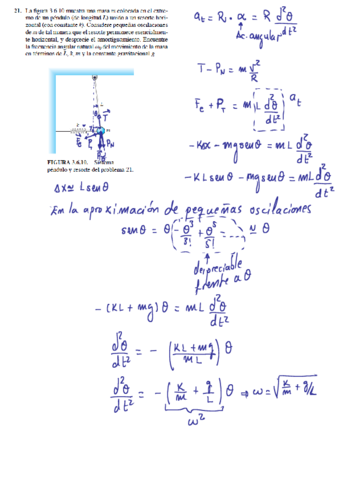 21. La figura 3.6.10 muestra una masa m colocada en el extre-
mo de un péndulo (de longitud L) unido a un resorte hori-
zontal (con constante k). Considere pequeñas oscilaciones
de m de tal manera que el resorte permanece esencialmen-
te horizontal, y desprecie el amortiguamiento. Encuentre
la frecuencia angular natural ω₀ del movimiento de la masa
en términos de L, k, m y la constante gravitacional g.
T
Fe
Pt
PN
FIGURA 3.6.10. Sistema
péndulo y resorte del problema 21.
a_t = R · α = R d²θ/dt²
Ac. angular
T - P_N = m v²/R
F_e + P_T = m L d²θ/dt²
a_t
- KΔx - mg senθ = mL d²θ/dt²
- KL senθ - mg senθ = mL d²θ/dt²
Δx ≃ L senθ
En la aproximación de pequeñas oscilaciones
senθ = θ - θ³/3! + θ⁵/5! ≃ θ
despreciable
frente a θ
- (KL + mg) θ = mL d²θ/dt²
d²θ/dt² = - (KL + mg / mL) θ
d²θ/dt² = - (K/m + g/L) θ ⇒ ω = √(K/m + g/L)
ω²